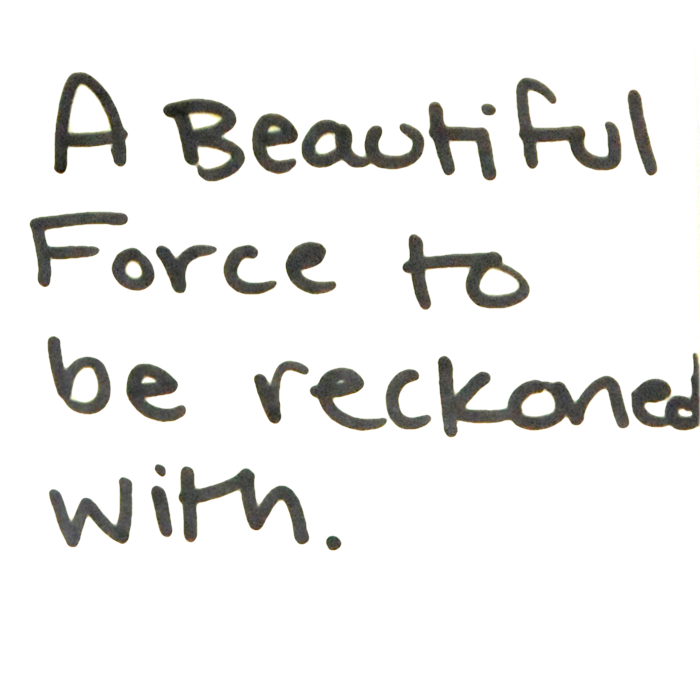 A Beautiful
Force to
be reckoned
with.